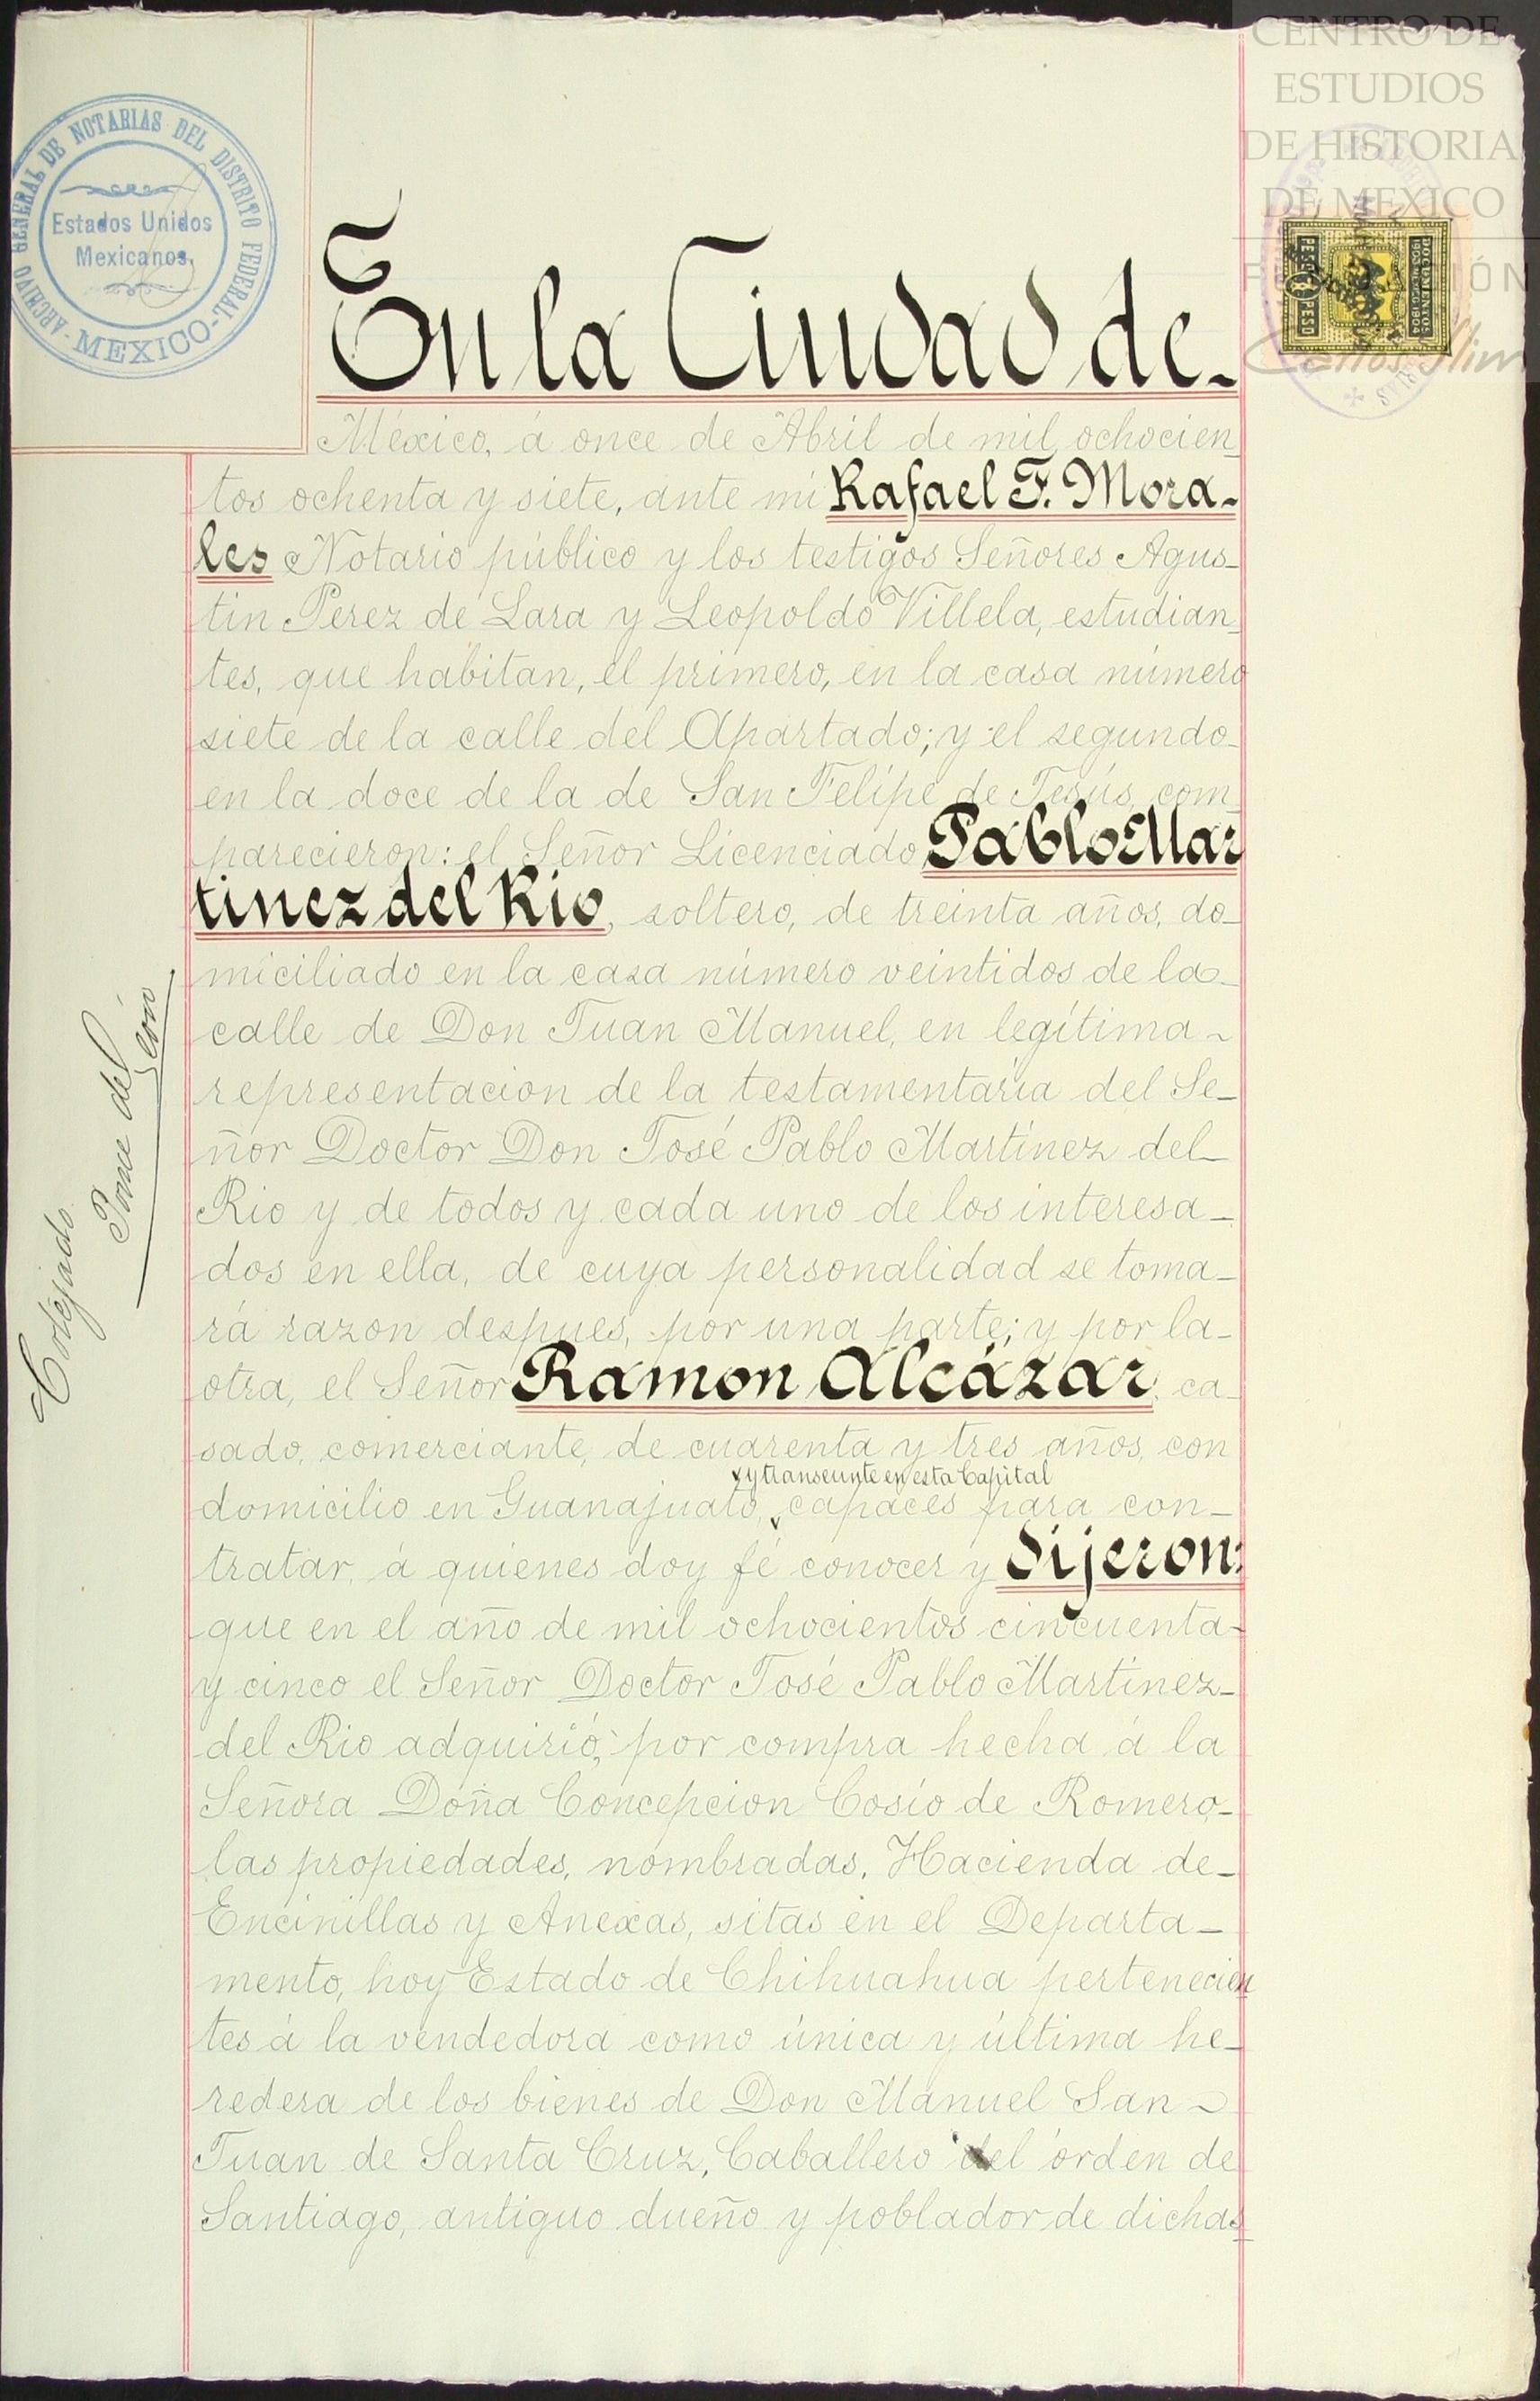 CENTRO DE
ESTUDIOS
DE HISTORIA
DE MEXICO
ARCHIVO GENERAL DE NOTARIAS DEL DISTRITO FEDERAL - MEXICO -
Estados Unidos
Mexicanos.
DOCUMENTOS
PESO PESO
Carlos Slim
En la Ciudad de
México, á once de Abril de mil ochocien
tos ochenta y siete, ante mí Rafael F. Mora-
les Notario público y los testigos Señores Agus-
tin Perez de Lara y Leopoldo Villela, estudian
tes, que habitan, el primero, en la casa número
siete de la calle del Apartado; y el segundo
en la doce de la de San Felípe de Jesús, com
parecieron: el Señor Licenciado Pablo Mar
tinez del Rio, soltero, de treinta años, do-
miciliado en la casa número veintidos de la
calle de Don Juan Manuel, en legítima
representacion de la testamentaría del Se-
ñor Doctor Don José Pablo Martinez del
Rio y de todos y cada uno de los interesa-
dos en ella, de cuya personalidad se toma-
rá razon despues, por una parte; y por la-
otra, el Señor Ramon Alcázar, ca-
sado, comerciante, de cuarenta y tres años, con
y transeunte en esta Capital
domicilio en Guanajuato, capaces para con-
tratar, á quienes doy fé conocer y dijeron:
que en el año de mil ochocientos cincuenta-
y cinco el Señor Doctor José Pablo Martinez-
del Rio adquirió, por compra hecha á la
Señora Doña Concepcion Cosío de Romero-
las propiedades, nombradas, Hacienda de-
Encinillas y Anexas, sitas en el Departa-
mento, hoy Estado de Chihuahua pertenecien
tes á la vendedora como única y última he-
redera de los bienes de Don Manuel San-
Juan de Santa Cruz, Caballero del órden de
Santiago, antiguo dueño y poblador de dichas
Cotejado.